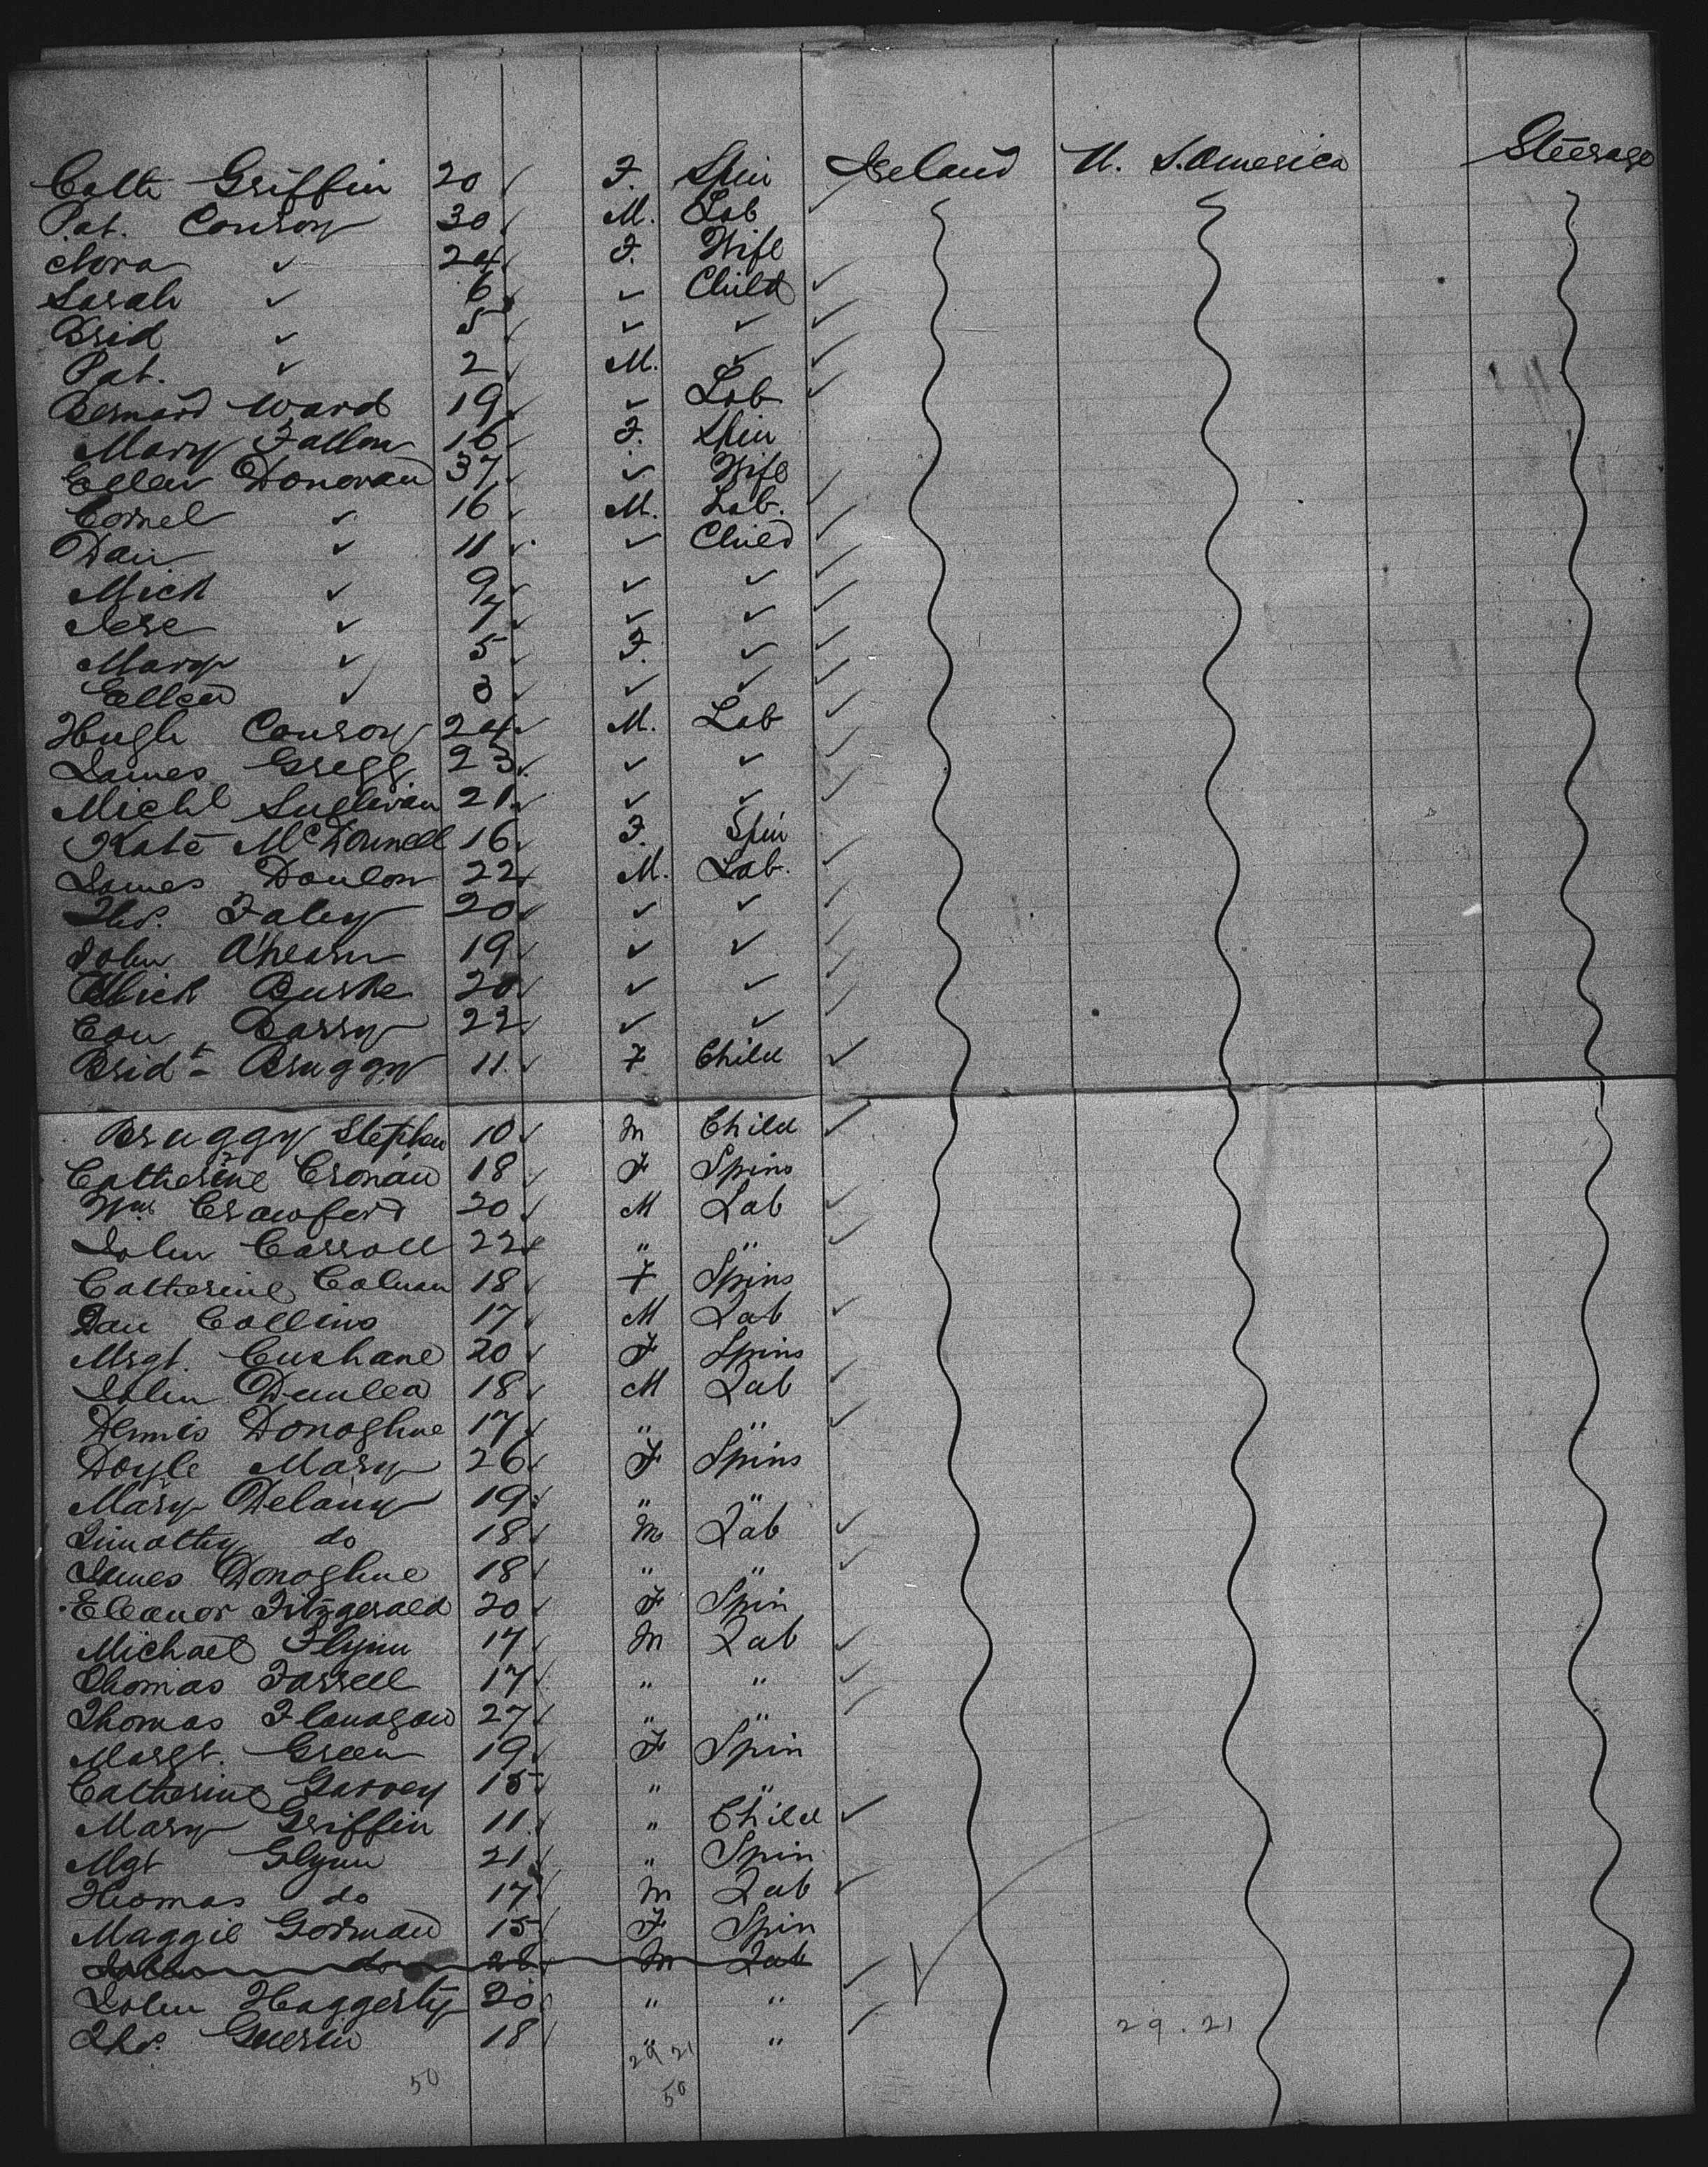 Cath Griffin 20 ✓ F. Spin Ireland U. S. America Steerage
Pat. Conroy 30 ✓ M. Lab ✓
Nora ✓ 24 ✓ F. Wife
Sarah ✓ 6 ✓ ✓ Child ✓
Brid ✓ 5 ✓ ✓ ✓ ✓
Pat. ✓ 2 ✓ M. ✓ ✓
Bernard Ward 19 ✓ ✓ Lab ✓
Mary Fallon 16 ✓ F. Spin
Ellen Donovan 37 ✓ ✓ Wife
Cornel ✓ 16 ✓ M. Lab. ✓
Dan ✓ 11 ✓ ✓ Child ✓
Mick ✓ 9 ✓ ✓ ✓ ✓
Jere ✓ 7 ✓ ✓ ✓ ✓
Mary ✓ 5 ✓ F. ✓ ✓
Ellen ✓ ✓ ✓ ✓ ✓
Hugh Conroy 24 ✓ M. Lab ✓
James Gregg 23 ✓ ✓ ✓ ✓
Michl Sullivan 21 ✓ ✓ ✓ ✓
Kate McDonnell 16 ✓ F. Spin
James Donlon 22 ✓ M. Lab. ✓
Thos. Fahey 20 ✓ ✓ ✓ ✓
John Ahearn 19 ✓ ✓ ✓ ✓
Ulick Burke 20 ✓ ✓ ✓ ✓
Con Barry 22 ✓ ✓ ✓ ✓
Bridt Bruggy 11 ✓ F Child ✓
Bruggy Stephen 10 ✓ M Child ✓
Catherine Cronan 18 ✓ F Spins
Wm Crawford 20 ✓ M Lab ✓
John Carroll 22 ✓ " " ✓
Catherine Colman 18 ✓ F Spins
Dan Collins 17 ✓ M Lab ✓
Mrgt. Cushane 20 ✓ F Spins
John Dunlea 18 ✓ M Lab ✓
Dennis Donoghue 17 ✓ " " ✓
Doyle Mary 26 ✓ F Spins
Mary Delany 19 ✓ " "
Timothy do 18 ✓ M Lab ✓
James Donoghue 18 ✓ " " ✓
Eleanor Fitzgerald 20 ✓ F Spin
Michael Flynn 17 ✓ M Lab ✓
Thomas Farrell 17 ✓ " " ✓
Thomas Flanagan 27 ✓ " " ✓
Margt. Green 19 ✓ F Spin
Catherine Garvey 15 ✓ " "
Mary Griffin 11 ✓ " Child ✓
Mgt Glynn 21 ✓ " Spin
Thomas do 17 ✓ M Lab ✓
Maggie Gorman 15 ✓ F Spin
John do M Lab
John Haggerty 20 ✓ " " ✓
Thos. Guerin 18 ✓ " " ✓ 29.21
29 21
50 50